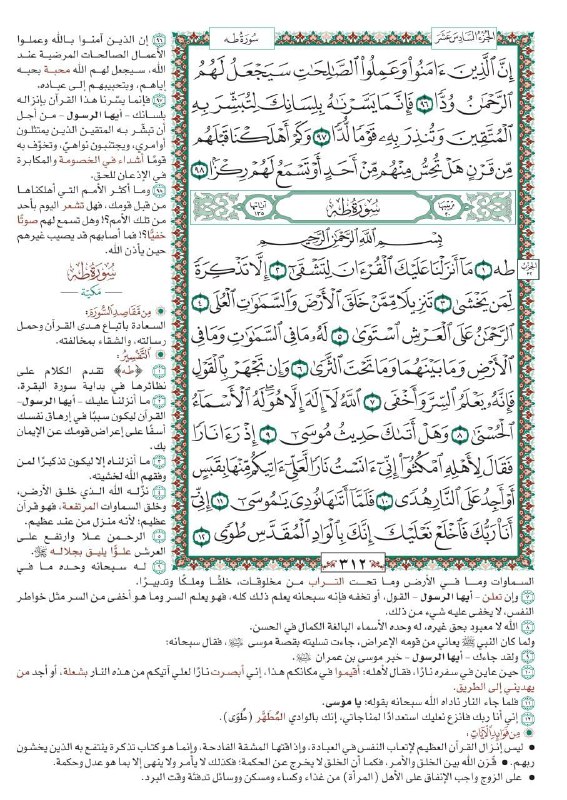 الجزء السادس عشر
سورة طه
إِنَّ ٱلَّذِينَ ءَامَنُوا۟ وَعَمِلُوا۟ ٱلصَّٰلِحَٰتِ سَيَجْعَلُ لَهُمُ
ٱلرَّحْمَٰنُ وُدًّا ٩٦ فَإِنَّمَا يَسَّرْنَٰهُ بِلِسَانِكَ لِتُبَشِّرَ بِهِ
ٱلْمُتَّقِينَ وَتُنذِرَ بِهِۦ قَوْمًا لُّدًّا ٩٧ وَكَمْ أَهْلَكْنَا قَبْلَهُم
مِّن قَرْنٍ هَلْ تُحِسُّ مِنْهُم مِّنْ أَحَدٍ أَوْ تَسْمَعُ لَهُمْ رِكْزًۢا ٩٨
ترتيبها ٢٠ سُورَةُ طه آياتها ١٣٥
بِسْمِ ٱللَّهِ ٱلرَّحْمَٰنِ ٱلرَّحِيمِ
طه ١ مَآ أَنزَلْنَا عَلَيْكَ ٱلْقُرْءَانَ لِتَشْقَىٰٓ ٢ إِلَّا تَذْكِرَةً
لِّمَن يَخْشَىٰ ٣ تَنزِيلًا مِّمَّنْ خَلَقَ ٱلْأَرْضَ وَٱلسَّمَٰوَٰتِ ٱلْعُلَى ٤
ٱلرَّحْمَٰنُ عَلَى ٱلْعَرْشِ ٱسْتَوَىٰ ٥ لَهُۥ مَا فِى ٱلسَّمَٰوَٰتِ وَمَا فِى
ٱلْأَرْضِ وَمَا بَيْنَهُمَا وَمَا تَحْتَ ٱلثَّرَىٰ ٦ وَإِن تَجْهَرْ بِٱلْقَوْلِ
فَإِنَّهُۥ يَعْلَمُ ٱلسِّرَّ وَأَخْفَى ٧ ٱللَّهُ لَآ إِلَٰهَ إِلَّا هُوَ لَهُ ٱلْأَسْمَآءُ
ٱلْحُسْنَىٰ ٨ وَهَلْ أَتَىٰكَ حَدِيثُ مُوسَىٰٓ ٩ إِذْ رَءَا نَارًا
فَقَالَ لِأَهْلِهِ ٱمْكُثُوٓا۟ إِنِّىٓ ءَانَسْتُ نَارًا لَّعَلِّىٓ ءَاتِيكُم مِّنْهَا بِقَبَسٍ
أَوْ أَجِدُ عَلَى ٱلنَّارِ هُدًى ١٠ فَلَمَّآ أَتَىٰهَا نُودِىَ يَٰمُوسَىٰٓ ١١ إِنِّىٓ
أَنَا۠ رَبُّكَ فَٱخْلَعْ نَعْلَيْكَ إِنَّكَ بِٱلْوَادِ ٱلْمُقَدَّسِ طُوًى ١٢
٣١٢
٩٦ إن الذين آمنوا بالله وعملوا
الأعمال الصالحات المرضية عند
الله، سيجعل لهم الله محبة بحبه
إياهم، وبتحبيبهم إلى عباده.
٩٧ فإنما يسّرنا هذا القرآن بإنزاله
بلسانك - أيها الرسول - من أجل
أن تبشّر به المتقين الذين يمتثلون
أوامري، ويجتنبون نواهيّ، وتخوّف به
قومًا أشداء في الخصومة والمكابرة
في الإذعان للحق.
٩٨ وما أكثر الأمم التي أهلكناها
من قبل قومك، فهل تشعر اليوم بأحد
من تلك الأمم؟! وهل تسمع لهم صوتًا
خفيًّا؟! فما أصابهم قد يصيب غيرهم
حين يأذن الله.
سورة طه
مكية
من مقاصد السورة:
السعادة باتباع هدى القرآن وحمل
رسالته، والشقاء بمخالفته.
التفسير:
١ ﴿طه﴾ تقدم الكلام على
نظائرها في بداية سورة البقرة.
٢ ما أنزلنا عليك - أيها الرسول-
القرآن ليكون سببًا في إرهاق نفسك
أسفًا على إعراض قومك عن الإيمان
بك.
٣ ما أنزلناه إلا ليكون تذكيرًا لمن
وفقهم الله لخشيته.
٤ نزّله الله الذي خلق الأرض،
وخلق السماوات المرتفعة، فهو قرآن
عظيم؛ لأنه منزل من عند عظيم.
٥ الرحمن علا وارتفع على
العرش علوًّا يليق بجلاله ﷻ.
٦ له سبحانه وحده ما في
السماوات وما في الأرض وما تحت التراب من مخلوقات، خلقًا وملكًا وتدبيرًا.
٧ وإن تعلن - أيها الرسول - القول، أو تخفه فإنه سبحانه يعلم ذلك كله، فهو يعلم السر وما هو أخفى من السر مثل خواطر
النفس، لا يخفى عليه شيء من ذلك.
٨ الله لا معبود بحق غيره، له وحده الأسماء البالغة الكمال في الحسن.
ولما كان النبي ﷺ يعاني من قومه الإعراض، جاءت تسليته بقصة موسى ﵇ ، فقال سبحانه:
٩ ولقد جاءك - أيها الرسول - خبر موسى بن عمران ﵇.
١٠ حين عاين في سفره نارًا، فقال لأهله: أقيموا في مكانكم هذا، إني أبصرت نارًا لعلي آتيكم من هذه النار بشعلة، أو أجد من
يهديني إلى الطريق.
١١ فلما جاء النار ناداه الله سبحانه بقوله: يا موسى.
١٢ إني أنا ربك فانزع نعليك استعدادًا لمناجاتي، إنك بالوادي المُطَهَّر (طُوًى).
من فوائد الآيات:
• ليس إنزال القرآن العظيم لإتعاب النفس في العبادة، وإذاقتها المشقة الفادحة، وإنما هو كتاب تذكرة ينتفع به الذين يخشون
ربهم. • قَرَن الله بين الخلق والأمر، فكما أن الخلق لا يخرج عن الحكمة؛ فكذلك لا يأمر ولا ينهى إلا بما هو عدل وحكمة.
• على الزوج واجب الإنفاق على الأهل (المرأة) من غذاء وكساء ومسكن ووسائل تدفئة وقت البرد.